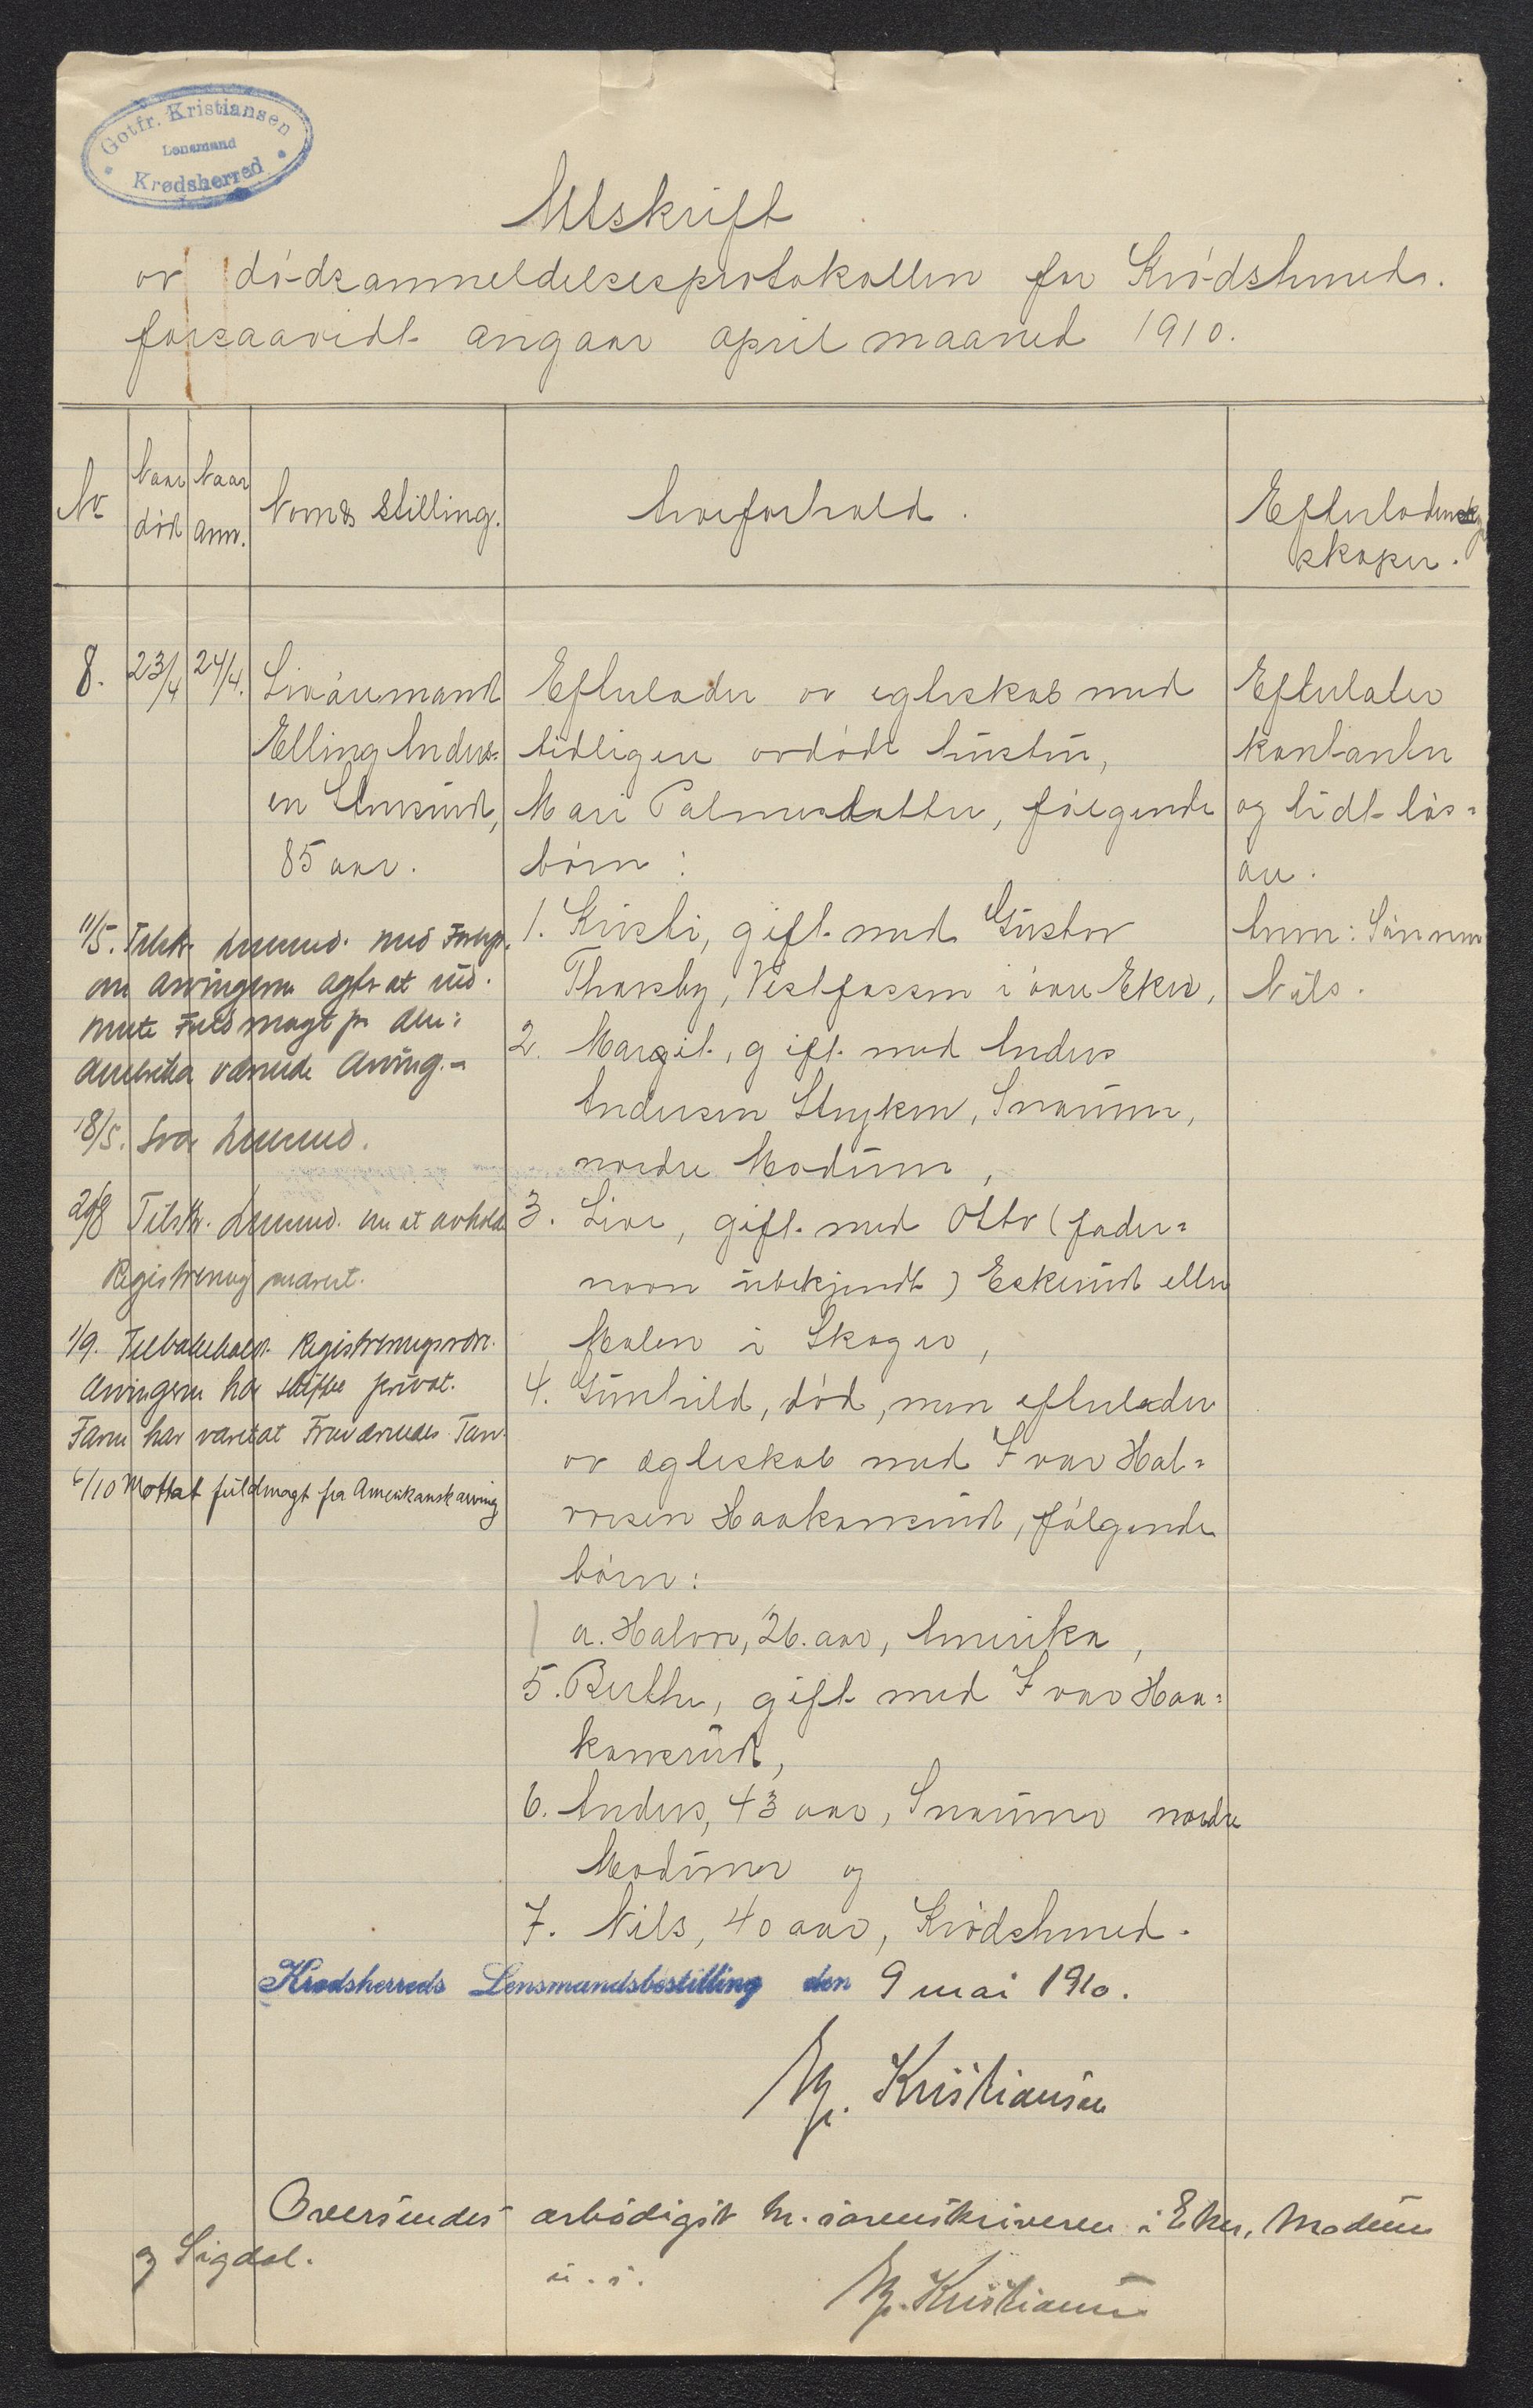 Gotfr. Kristiansen
Lensmand
Krødsherred
Utskrift
av dødsanmeldelsesprotokollen for Krødsherred.
forsaavidt angaar april maaned 1910.
No
Naar død
Naar anm.
Navn & Stilling.
Arveforhold.
Efterladenskaper.
8.
23/4
24/4.
Livøremand
Elling Anders-
en
85 aar.
Efterlader av egteskab med
tidligere avdøde hustru,
Mari Palmesdatter, følgende
børn:
1. Kristi, gift med Gustav
Thorsby, Vestfossen i øvre Eker,
2. Margit, gift med Anders
Andersen Stryken, Snarum,
nordre Modum,
3. Live, gift med Otto (fader-
navn ubekjendt) Eskerud eller
Molen i Skoger,
4. Gunhild, død, men efterlader
av egteskab med Ivar Hal-
vorsen Haakonsrud, følgende
børn:
a. Halvor, 26. aar, Amerika,
5. Berthe, gift med Ivar Haa-
konsrud,
6. Anders, 43 aar, Snarum nordre
Modum og
7. Nils, 40 aar, Krødsherred.
Efterlater
kontanter
og lidt løs-
øre.
Anm: Sønnen
Nils.
11/5. Tilskr. Lensmd. med Foresp.
om arvingerne agter at
Fuldmagt fra
Amerika værende Arving.-
18/5. Svar Lensmd.
Tilskr. Lensmd. om at avholde
Registrering
1/9. Tilbakehold. Registreringsordre.
Arvingerne har skiftet privat.
6/10 Mottat fuldmagt fra Amerikansk arving
Krødsherreds Lensmandsbestilling den 9 mai 1910.
Kristiansen
Oversendes ærbødigst hr. sorenskriveren i Eker, Modum
og Sigdal.
u. s.
Kristiansen